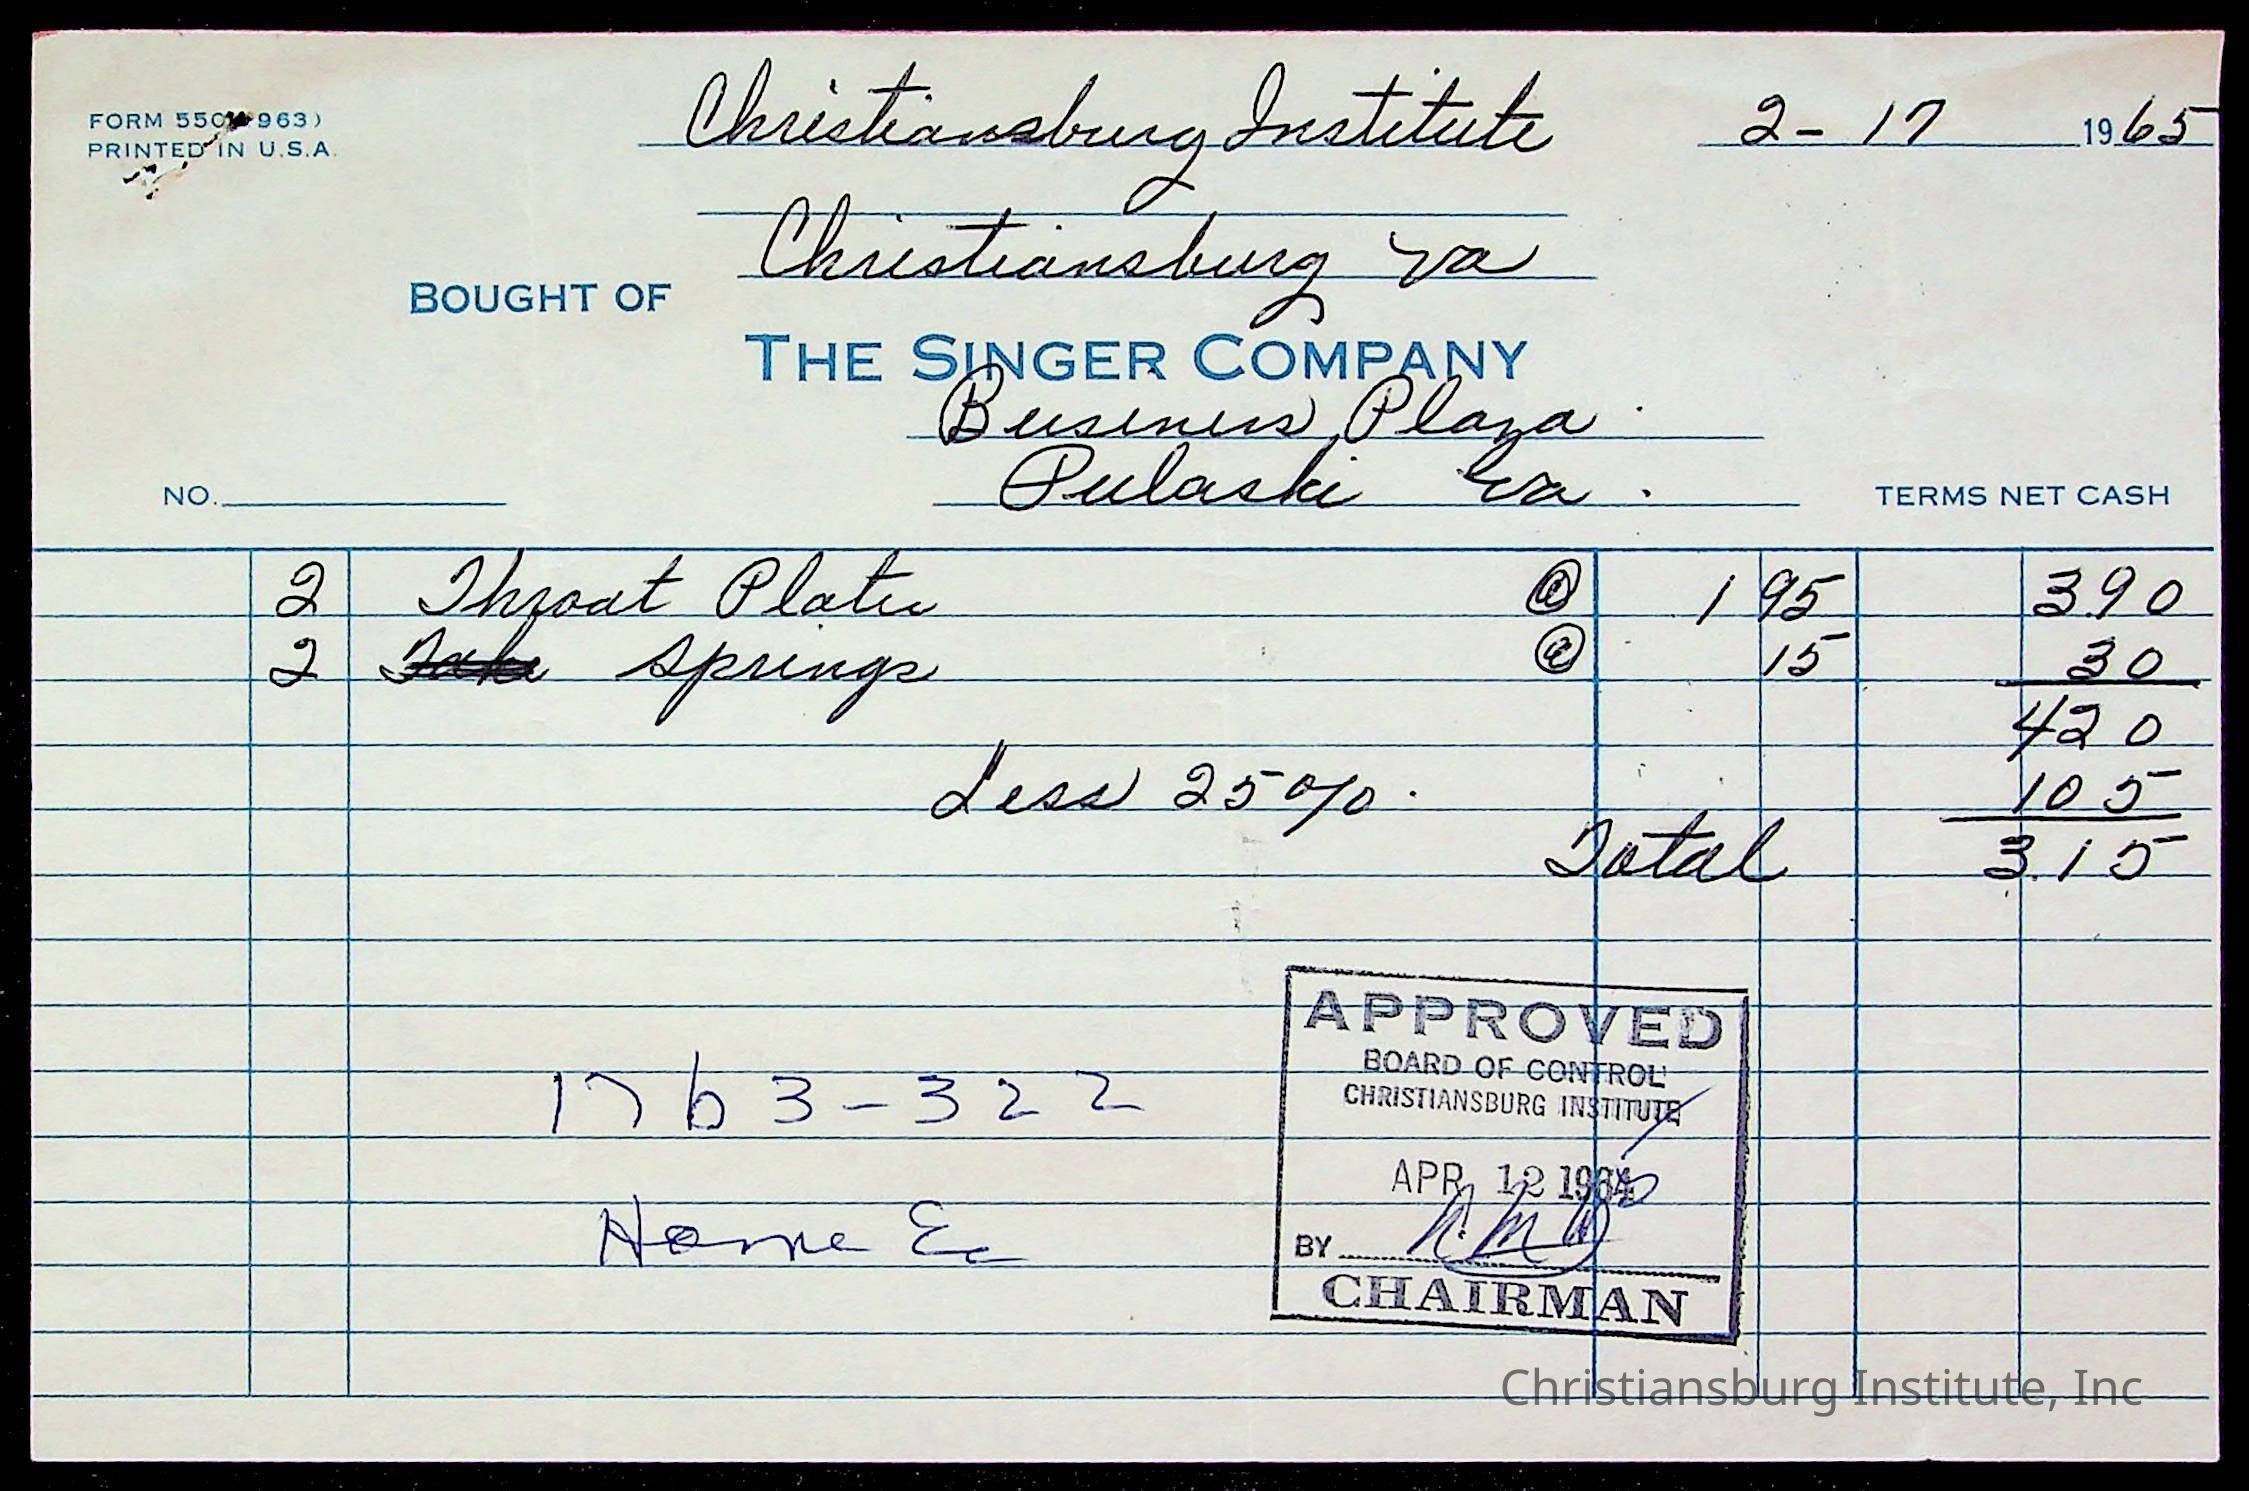 FORM 550 963)
PRINTED IN U.S.A.
Christiansburg Institute 2-17 1965
Christiansburg Va
BOUGHT OF
THE SINGER COMPANY
Business Plaza.
NO. Pulaski Va. TERMS NET CASH
2 Throat Plates @ 1 95 3.90
2 Springs @ 15 30
4 20
Less 25%. 1 05
Total 3.15
APPROVED
BOARD OF CONTROL
CHRISTIANSBURG INSTITUTE
1763-322
APR 12 196
Home Ec
BY
CHAIRMAN
Christiansburg Institute, Inc